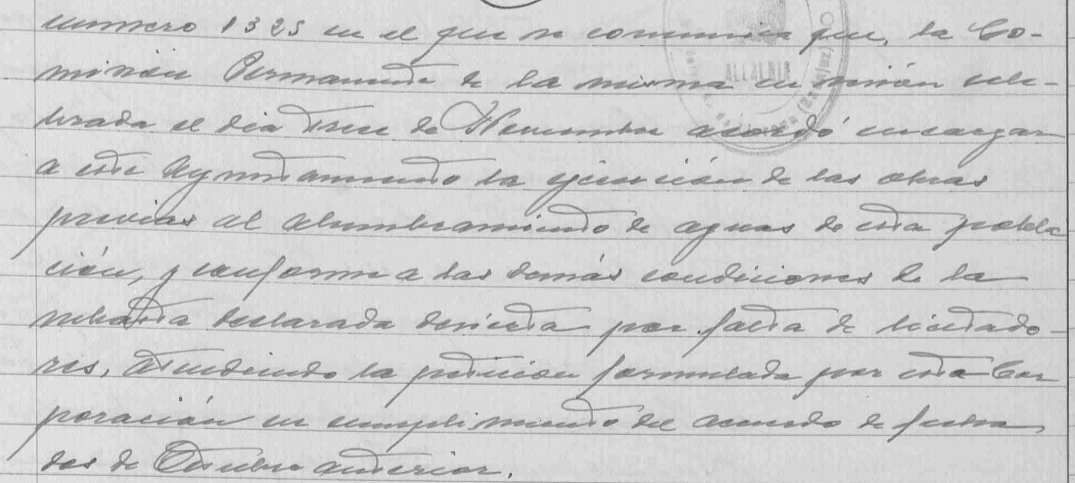 numero 1325 en el que se comunica que, la Co-
misión Permanente de la misma en sesión cele-
brada el dia trece de Noviembre acordó encargar
a este Ayuntamiento la ejecución de las obras
previas al alumbramiento de aguas de esta pobla
ción, y conforme a las demás condiciones de la
subasta declarada desierta por falta de licitado-
res, atendiendo la petición formulada por esta Cor
poración en cumplimiento del acuerdo de fecha
dos de Octubre anterior.
ALCALDIA